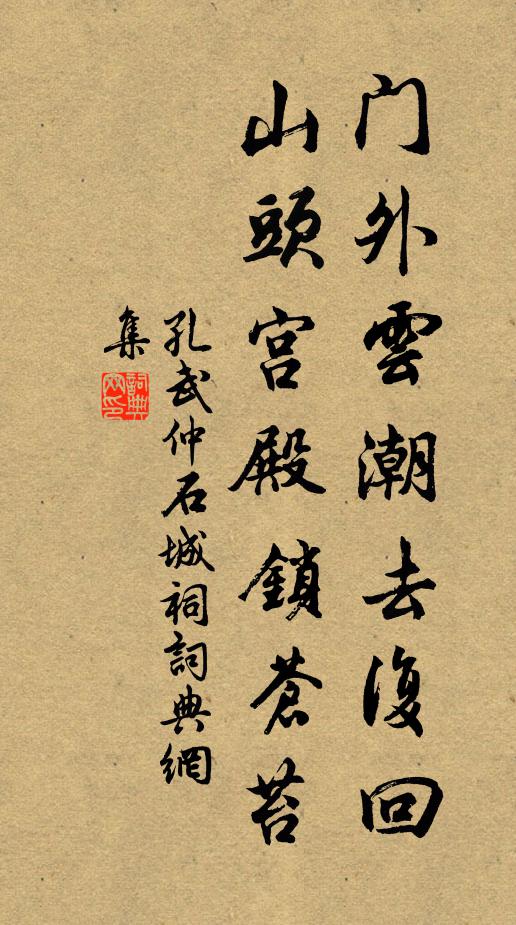 门外雲潮去復回
山頭宫殿鎖蒼苔
孔武仲石城祠詞典網
集
詞典網印